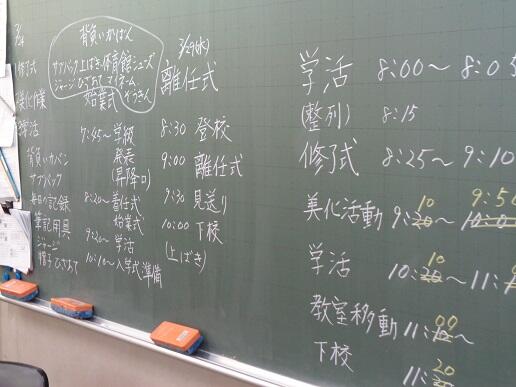 3/24
修了式
美化作業
学活
背負いカバン
サブバック
毎日の記録
筆記用具
ジャージ
帽子 ひざあて
背負いかばん
サブバック 上ばき 体育館シューズ
ジャージ ひざあて マイネーム
始業式 ぞうきん
7:45～学級
発表
(昇降口)
8:20～着任式
始業式
9:20～学活
10:10～入学式準備
3/29(水)
離任式
8:30 登校
9:00 離任式
9:30 見送り
10:00 下校
(上ばき)
学活 8:00～8:0
(整列) 8:15
修了式 8:25～9:10
美化活動 9:20 10～10:0 9:50
学活 10:20 10～11:
教室移動 11:10 00～
下校 11: 20